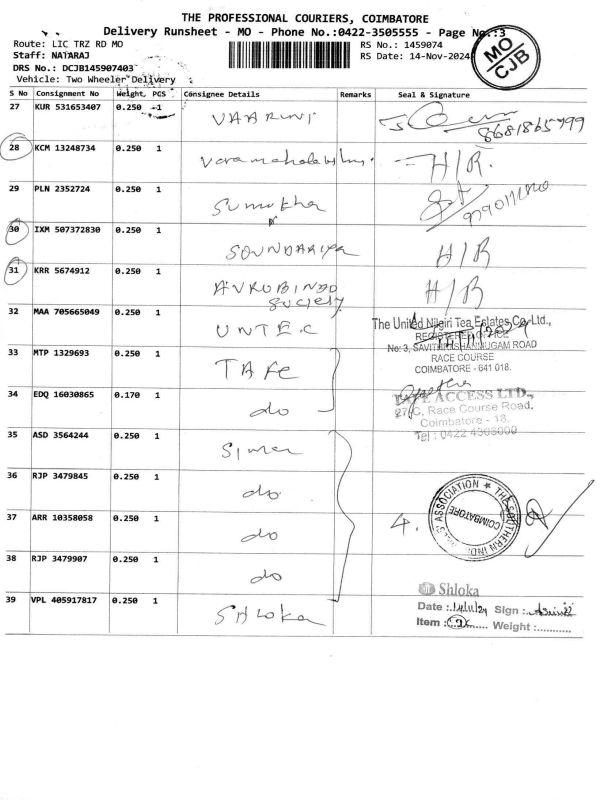 THE PROFESSIONAL COURIERS, COIMBATORE
Delivery Runsheet - MO - Phone No.:0422-3505555 - Page No.:3
Route: LIC TRZ RD MO
RS No.: 1459074
Staff: NATARAJ
RS Date: 14-Nov-2024
DRS No.: DCJB145907403
Vehicle: Two Wheeler Delivery
MO
CJB
S No Consignment No Weight PCS Consignee Details Remarks Seal & Signature
27 KUR 531653407 0.250 1 VAARUNI
8681865799
28 KCM 13248734 0.250 1 H/R.
29 PLN 2352724 0.250 1 Sumukha
30 IXM 507372830 0.250 1 SOUNDARIYA H/R
31 KRR 5674912 0.250 1 AUROBINDO H/R
Society
32 MAA 705665049 0.250 1 UNTEC
The United Nilgiri Tea Estates Co. Ltd.,
REGISTERED OFFICE
No: 3, SAVITHRI SHANMUGAM ROAD
RACE COURSE
COIMBATORE - 641 018.
33 MTP 1329693 0.250 1 TAFe
34 EDQ 16030865 0.170 1 do
ACCESS LTD.,
27/C, Race Course Road,
Coimbatore - 18.
Tel : 0422 4368000
35 ASD 3564244 0.250 1 Sima
36 RJP 3479845 0.250 1 do
37 ARR 10358058 0.250 1 do 4.
ASSOCIATION * THE SOUTHERN INDIA
COIMBATORE
38 RJP 3479907 0.250 1 do
39 VPL 405917817 0.250 1 SHLOKA
Shloka
Date :.14/11/24 Sign :
Item : Weight :...........